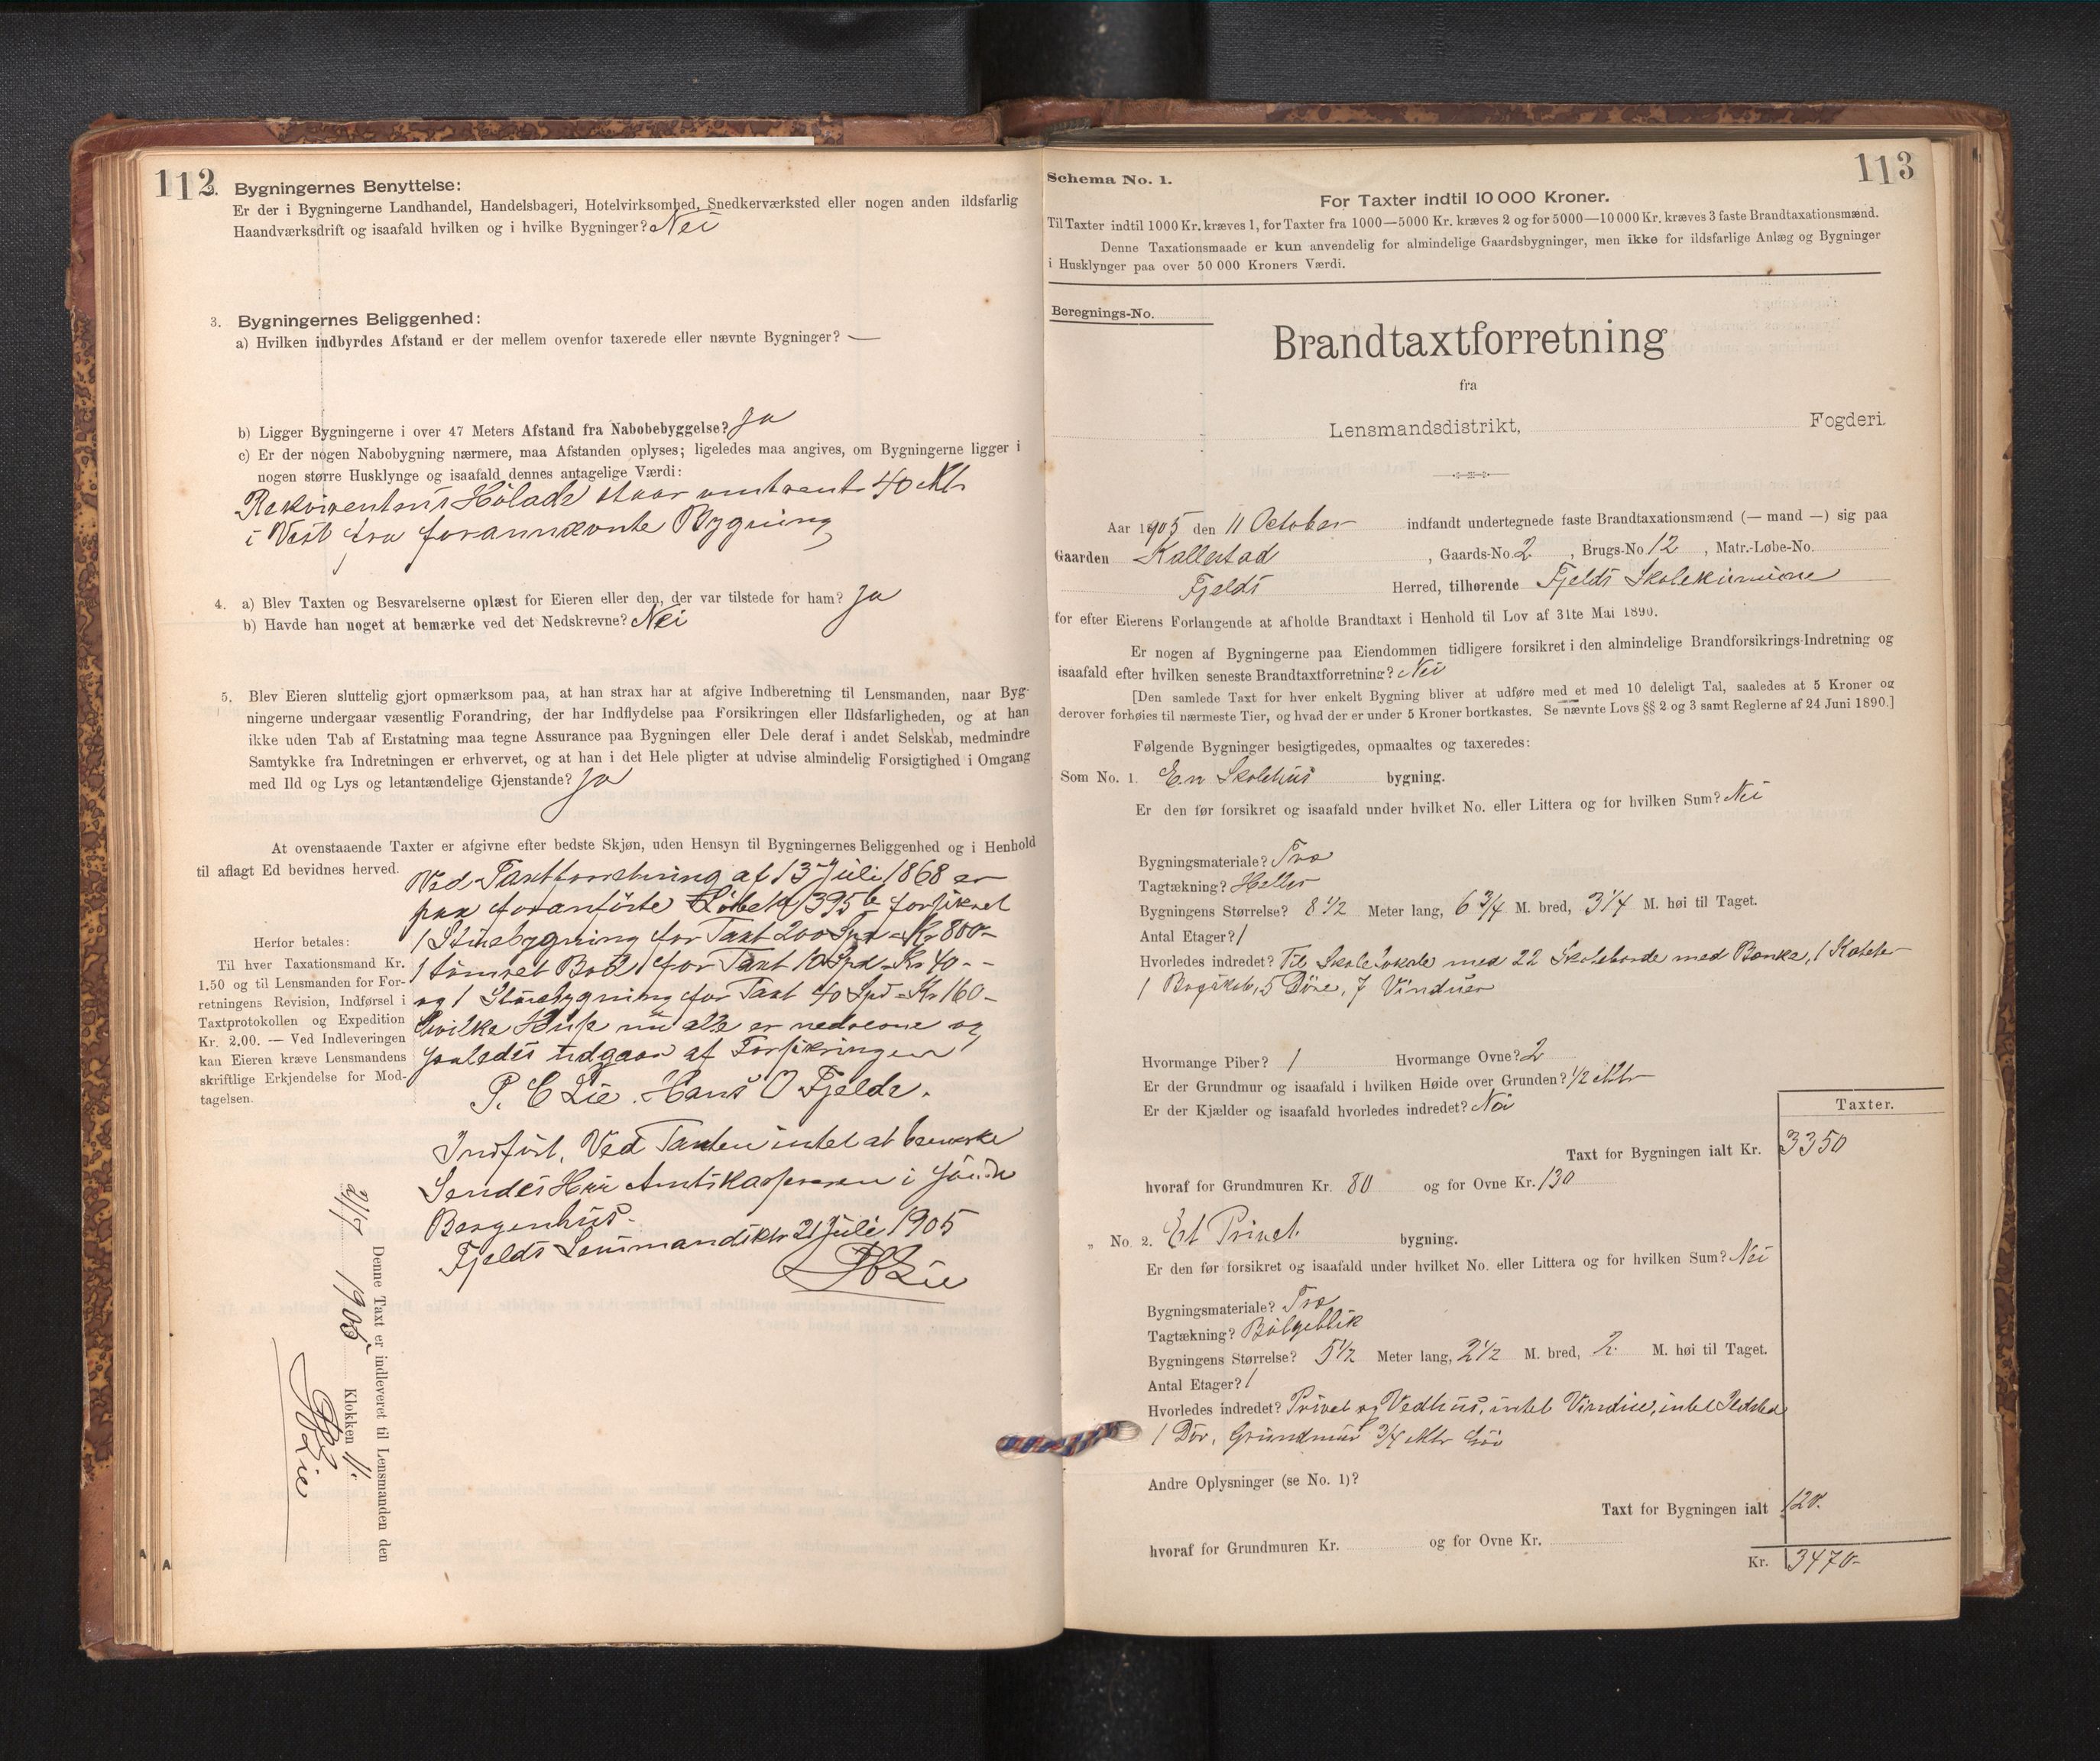 112
2. Bygningernes Benyttelse:
Er der i Bygningerne Landhandel, Handelsbageri, Hotelvirksomhed, Snedkerværksted eller nogen anden ildsfarlig
Haandværksdrift og isaafald hvilken og i hvilke Bygninger? Nei
3. Bygningernes Beliggenhed:
a) Hvilken indbyrdes Afstand er der mellem ovenfor taxerede eller nævnte Bygninger? —
b) Ligger Bygningerne i over 47 Meters Afstand fra Nabobebyggelse? Ja
c) Er der nogen Nabobygning nærmere, maa Afstanden oplyses; ligeledes maa angives, om Bygningerne ligger i
nogen større Husklynge og isaafald dennes antagelige Værdi:
Rekvirentens Hølade staar omtrent 40 Mtr
i Vest fra forannævnte Bygning
4. a) Blev Taxten og Besvarelserne oplæst for Eieren eller den, der var tilstede for ham? Ja
b) Havde han noget at bemærke ved det Nedskrevne? Nei
5. Blev Eieren sluttelig gjort opmærksom paa, at han strax har at afgive Indberetning til Lensmanden, naar Byg-
ningerne undergaar væsentlig Forandring, der har Indflydelse paa Forsikringen eller Ildsfarligheden, og at han
ikke uden Tab af Erstatning maa tegne Assurance paa Bygningen eller Dele deraf i andet Selskab, medmindre
Samtykke fra Indretningen er erhvervet, og at han i det Hele pligter at udvise almindelig Forsigtighed i Omgang
med Ild og Lys og letantændelige Gjenstande? Ja
At ovenstaaende Taxter er afgivne efter bedste Skjøn, uden Hensyn til Bygningernes Beliggenhed og i Henhold
til aflagt Ed bevidnes herved.
Ved Taxtforretning af 13 Juli 1868 er
paa foranførte Løbe No 395 b forsikret
1 Stuebygning for Taxt 200 Spd = Kr 800 -
1 tømret Bod for Taxt 10 Spd = Kr 40 - -
og 1 Stuebygning for Taxt 40 Spd = Kr 160 -
hvilke Huse nu alle er nedrevne og
saaledes udgaar af Forsikringen
P. C Lie. Hans O Fjelde.
Indført. Ved Taxten intet at bemærke
Sendes Herr Amtskassereren i Søndre
Bergenhus.
Fjelds Lensmandsktr 21 Juli 1905
Lie
Herfor betales:
Til hver Taxationsmand Kr.
1.50 og til Lensmanden for For-
retningens Revision, Indførsel i
Taxtprotokollen og Expedition
Kr. 2.00. — Ved Indleveringen
kan Eieren kræve Lensmandens
skriftlige Erkjendelse for Mod-
tagelsen.
Denne Taxt er indleveret til Lensmanden den
21/7 1905 Klokken 11.
Lie
A A
113
Schema No. 1.
For Taxter indtil 10 000 Kroner.
Til Taxter indtil 1000 Kr. kræves 1, for Taxter fra 1000—5000 Kr. kræves 2 og for 5000—10 000 Kr. kræves 3 faste Brandtaxationsmænd.
Denne Taxationsmaade er kun anvendelig for almindelige Gaardsbygninger, men ikke for ildsfarlige Anlæg og Bygninger
i Husklynger paa over 50 000 Kroners Værdi.
Beregnings-No.
Brandtaxtforretning
fra
Lensmandsdistrikt, Fogderi.
Aar 1905 den 11 October indfandt undertegnede faste Brandtaxationsmænd (— mand —) sig paa
Gaarden Kallestad, Gaards-No 2, Brugs-No 12, Matr.-Løbe-No.
Fjelds Herred, tilhørende Fjelds Skolekomune
for efter Eierens Forlangende at afholde Brandtaxt i Henhold til Lov af 31te Mai 1890.
Er nogen af Bygningerne paa Eiendommen tidligere forsikret i den almindelige Brandforsikrings-Indretning og
isaafald efter hvilken seneste Brandtaxtforretning? Nei
[Den samlede Taxt for hver enkelt Bygning bliver at udføre med et med 10 deleligt Tal, saaledes at 5 Kroner og
derover forhøies til nærmeste Tier, og hvad der er under 5 Kroner bortkastes. Se nævnte Lovs §§ 2 og 3 samt Reglerne af 24 Juni 1890.]
Følgende Bygninger besigtigedes, opmaaltes og taxeredes:
Som No. 1. En Skolehus bygning.
Er den før forsikret og isaafald under hvilket No. eller Littera og for hvilken Sum? Nei
Bygningsmateriale? Træ
Tagtækning? Heller
Bygningens Størrelse? 8 1/2 Meter lang, 6 3/4 M. bred, 3 1/4 M. høi til Taget.
Antal Etager? 1
Hvorledes indredet? Til Skolelokale med 22 Skoleborde med Bænke, 1 Kateter
1 Bogskab, 5 Døre, 7 Vinduer
Hvormange Piber? 1 Hvormange Ovne? 2
Er der Grundmur og isaafald i hvilken Høide over Grunden? 1/2 Mtr
Er der Kjælder og isaafald hvorledes indredet? Nei
Taxter.
Taxt for Bygningen ialt Kr. 3350
hvoraf for Grundmuren Kr. 80 og for Ovne Kr. 130
„ No. 2. Et Privet bygning.
Er den før forsikret og isaafald under hvilket No. eller Littera og for hvilken Sum? Nei
Bygningsmateriale? Træ
Tagtækning? Bølgeblik
Bygningens Størrelse? 5 1/2 Meter lang, 2 1/2 M. bred, 2 M. høi til Taget.
Antal Etager? 1
Hvorledes indredet? Privet og Vedhus, intet Vindue, intet Ildsted
1 Dør, Grundmur 3/4 Mtr høi
Andre Oplysninger (se No. 1)?
Taxt for Bygningen ialt 120.
hvoraf for Grundmuren Kr. og for Ovne Kr.
Kr. 3470-